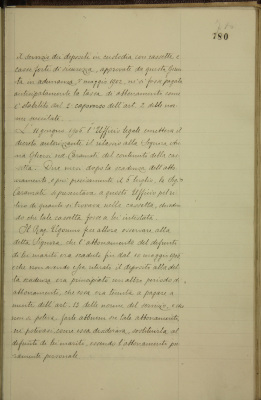 780
il servizio dei depositi in custodia con cassette, e
casse forti di sicurezza, approvato da questa Giun
ta in adunanza maggio 1902, non fosse pagata
anticipatamente la tassa di abbonamento come
è stabilito dal capoverso dell'art. 2 delle nor
me accennate.
L'11 giugno 1906 l'Ufficio legale emetteva il
decreto autorizzante il rilascio alla Signora
ved. Caramati del contenuto della cas
setta. Due mesi dopo la scadenza dell'abbo
namento e più precisamente il luglio, la Sig.a
Caramati si presentava a questo Ufficio per ri
tirare quanto si trovava nella cassetta, chieden
do che tale cassetta fosse a lei intestata.
Il Rag. fece allora osservare alla
detta Signora, che l'abbonamento del defunto
di lei marito era scaduto fin dal maggio
e che non avendo ella ritirato il deposito alla del
la scadenza, era principiato un altro periodo di
abbonamento, che essa era tenuta a pagare a
mente dell'art. 12 delle norme del servizio, e che
non si poteva farle abbuono su tale abbonamento,
né potevasi, come essa desiderava, sostituirla al
defunto di lei marito, essendo l'abbonamento pu
ramente personale.